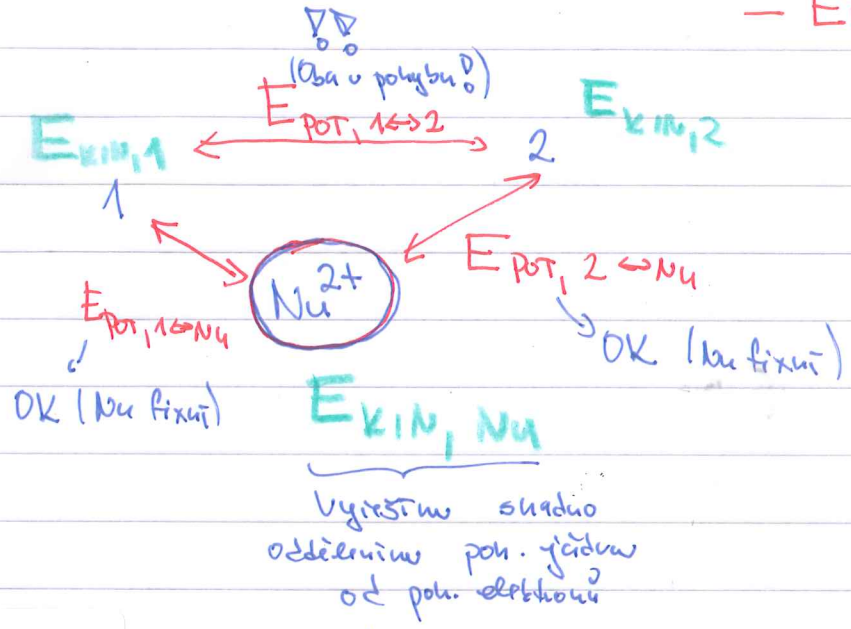 — E
!!
(Oba v pohybu!)
E POT, 1↔2
E KIN, 1
2
E KIN, 2
1
Nu 2+
E POT, 2↔Nu
E POT, 1↔Nu
OK (Nu fixní)
OK (Nu fixní)
E KIN, Nu
Vyřeším snadno
oddělením poh. jádra
od poh. elektronů